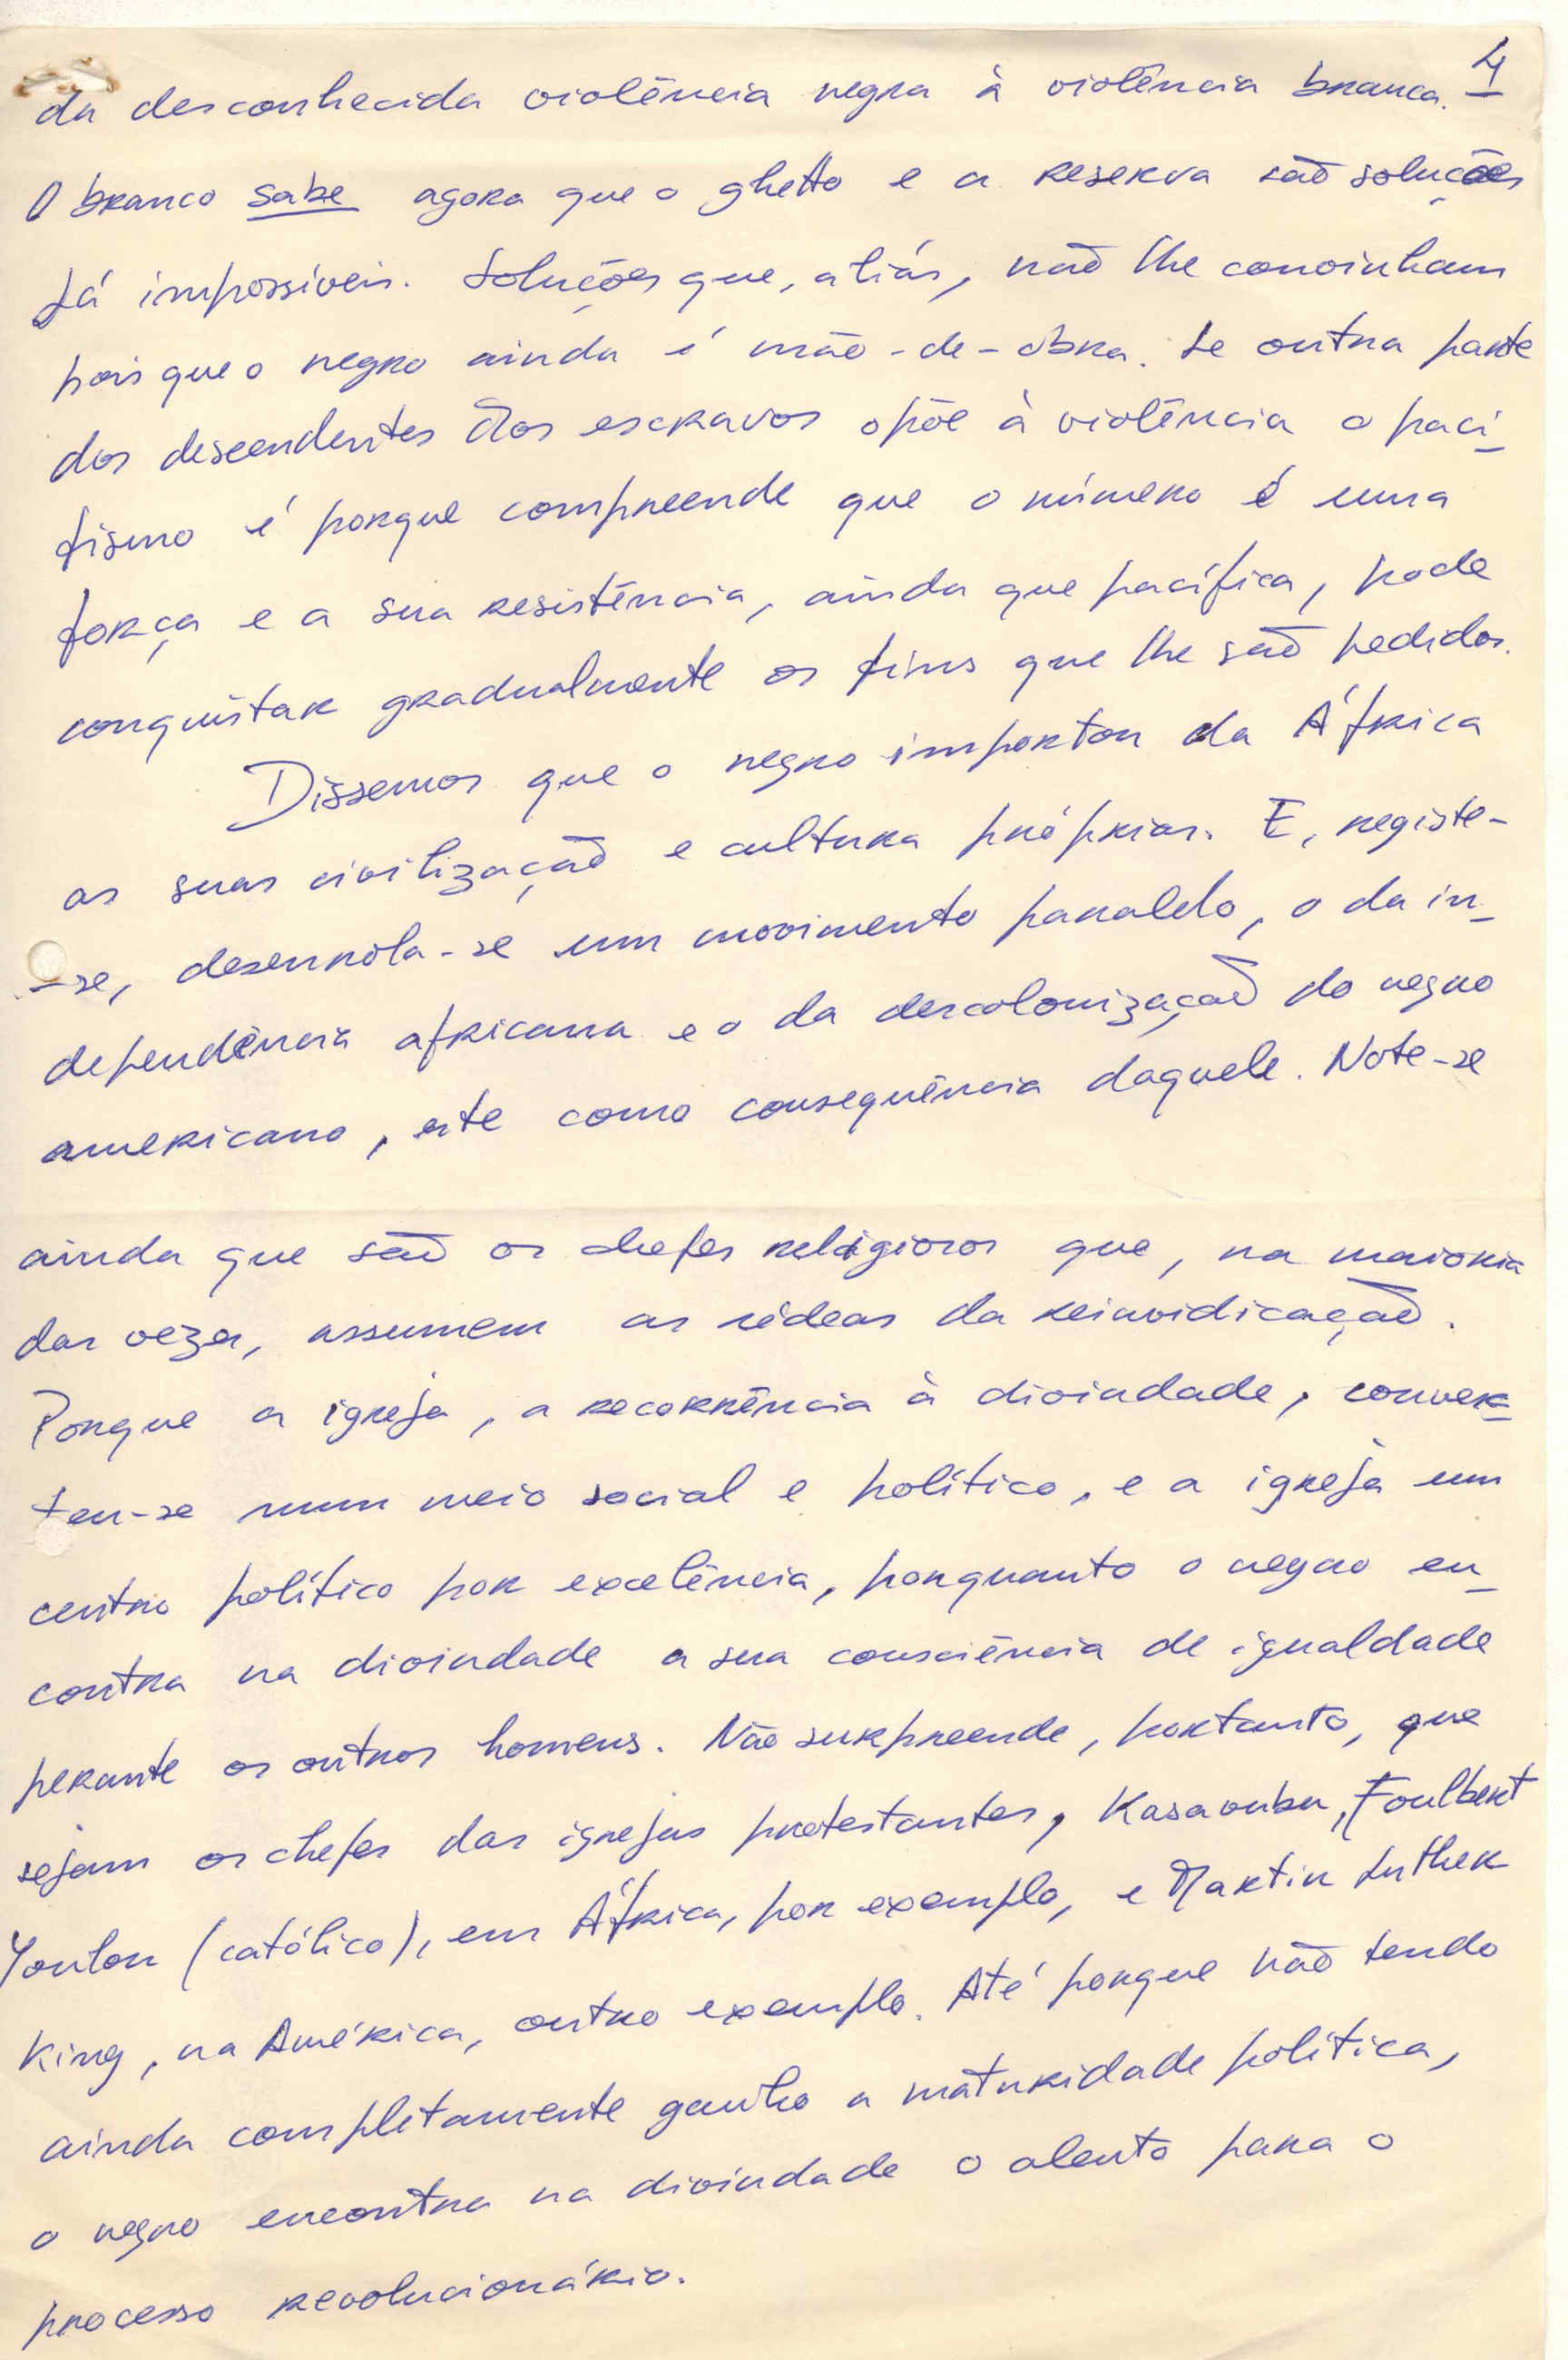 4
da desconhecida violência negra à violência branca.
O branco sabe agora que o ghetto e a reserva são soluções
já impossíveis. Soluções que, aliás, não lhe convinham
pois que o negro ainda é mão-de-obra. Se outra parte
dos descendentes dos escravos opõe à violência o paci-
fismo é porque compreende que o número é uma
força e a sua resistência, ainda que pacífica, pode
conquistar gradualmente os fins que lhe são pedidos.
Dissemos que o negro importou da África
as suas civilização e cultura próprias. E, registe-
-se, desenrola-se um movimento paralelo, o da in-
dependência africana e o da descolonização do negro
americano, este como consequência daquele. Note-se
ainda que são os chefes religiosos que, na maioria
das vezes, assumem as rédeas da reinvidicação.
Porque a igreja, a recorrência à divindade, conver-
teu-se num meio social e político, e a igreja um
centro político por excelência, porquanto o negro en-
contra na divindade a sua consciência de igualdade
perante os outros homens. Não surpreende, portanto, que
sejam os chefes das igrejas protestantes, Kasavubu, Foulbert
Youlou (católico), em África, por exemplo, e Martin Luther
King, na América, outro exemplo. Até porque não tendo
ainda completamente ganho a maturidade política,
o negro encontra na divindade o alento para o
processo revolucionário.